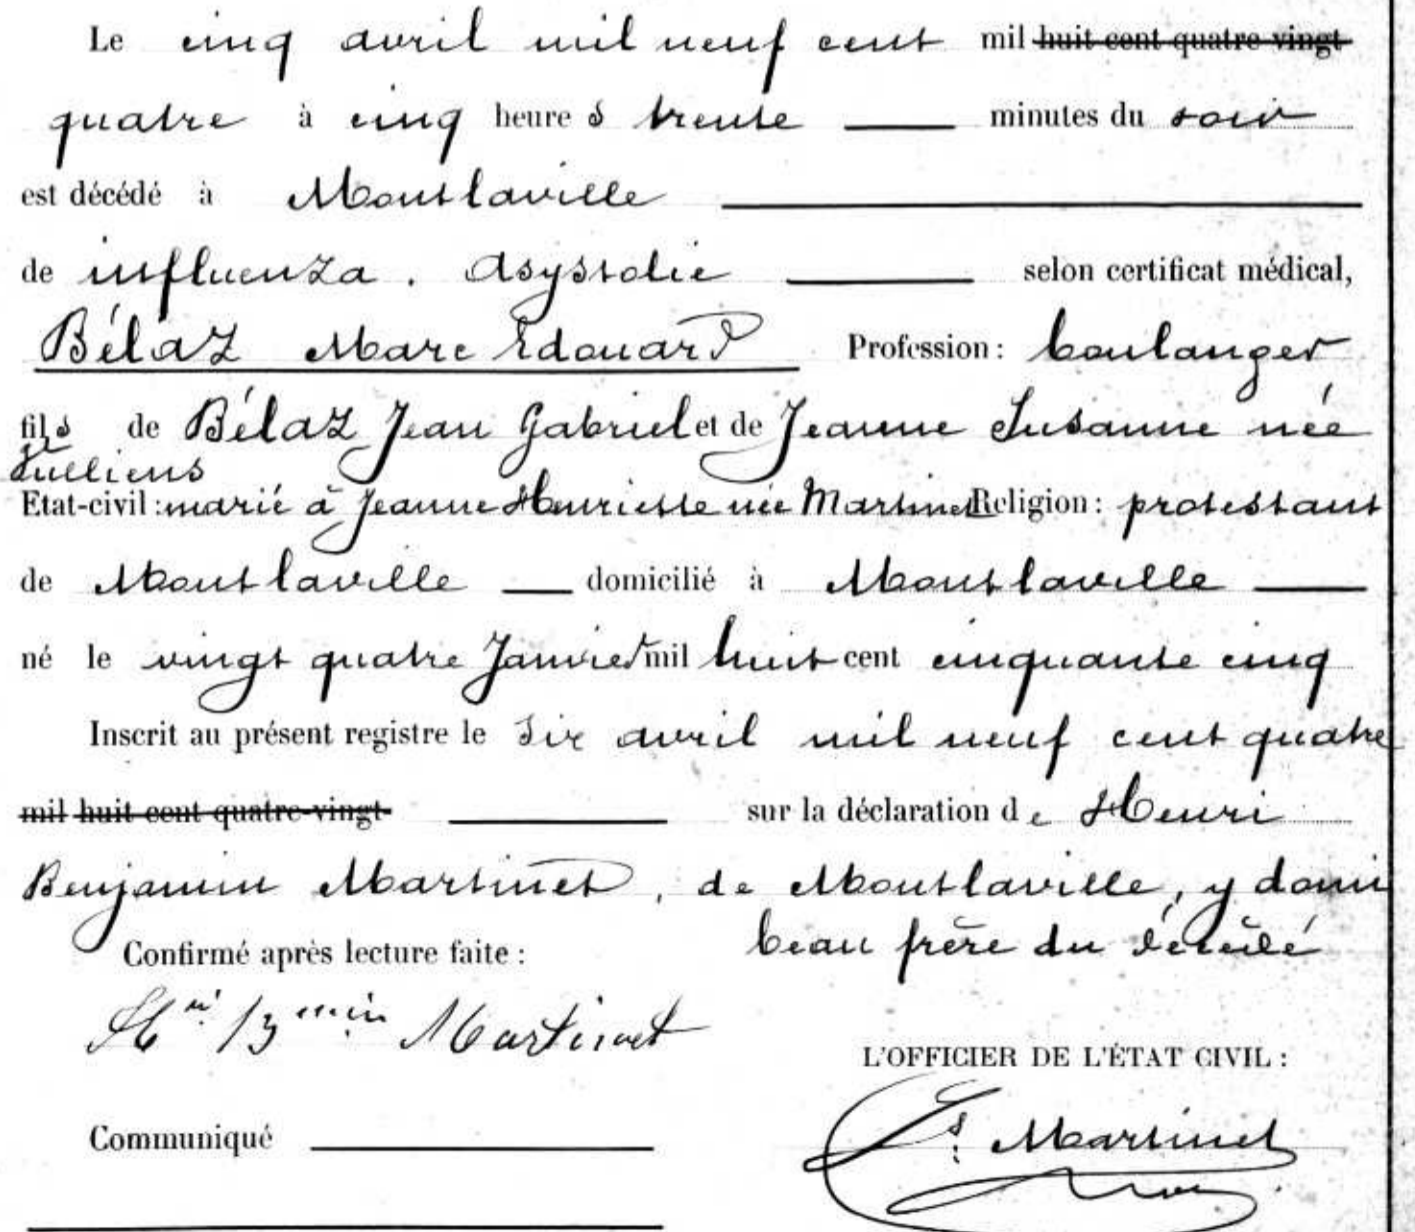 Le cinq avril mil neuf cent mil huit cent quatre-vingt
quatre à cinq heures trente minutes du soir
est décédé à Montlaville
de influenza. Asystolie selon certificat médical,
Bélaz Marc Edouard Profession : boulanger
fils de Bélaz Jean Gabriel et de Jeanne Susanne née
Julliens
Etat-civil : marié à Jeanne Henriette née Martinet Religion : protestant
de Montlaville domicilié à Montlaville
né le vingt quatre Janvier mil huit cent cinquante cinq
Inscrit au présent registre le six avril mil neuf cent quatre
mil huit cent quatre-vingt- sur la déclaration de Henri
Benjamin Martinet, de Montlaville, y domi
Confirmé après lecture faite : beau frère du décédé
Hri Bmin Martinet
L'OFFICIER DE L'ÉTAT CIVIL :
Communiqué Ls Martinet